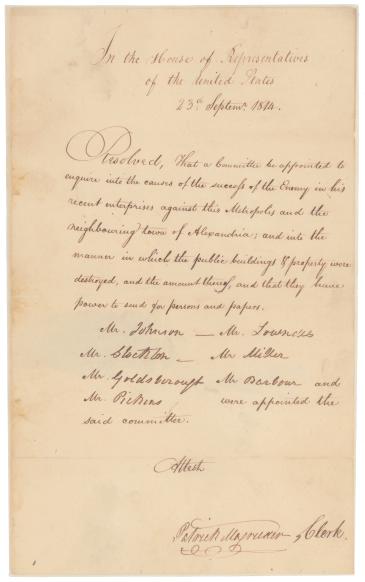 In the House of Representatives
of the United States
23d Septemr. 1814.
Resolved, That a Committee be appointed to
enquire into the causes of the success of the Enemy in his
recent enterprises against this Metropolis and the
neighbouring town of Alexandria; and into the
manner in which the public buildings & property were
destroyed, and the amount thereof, and that they have
power to send for persons and papers.
Mr. Johnson — Mr. Lowndes
Mr. Stockton — Mr Miller
Mr. Goldsborough Mr Barbour and
Mr. Pickens were appointed the
said committee.
Attest
Patrick Magruder, Clerk.